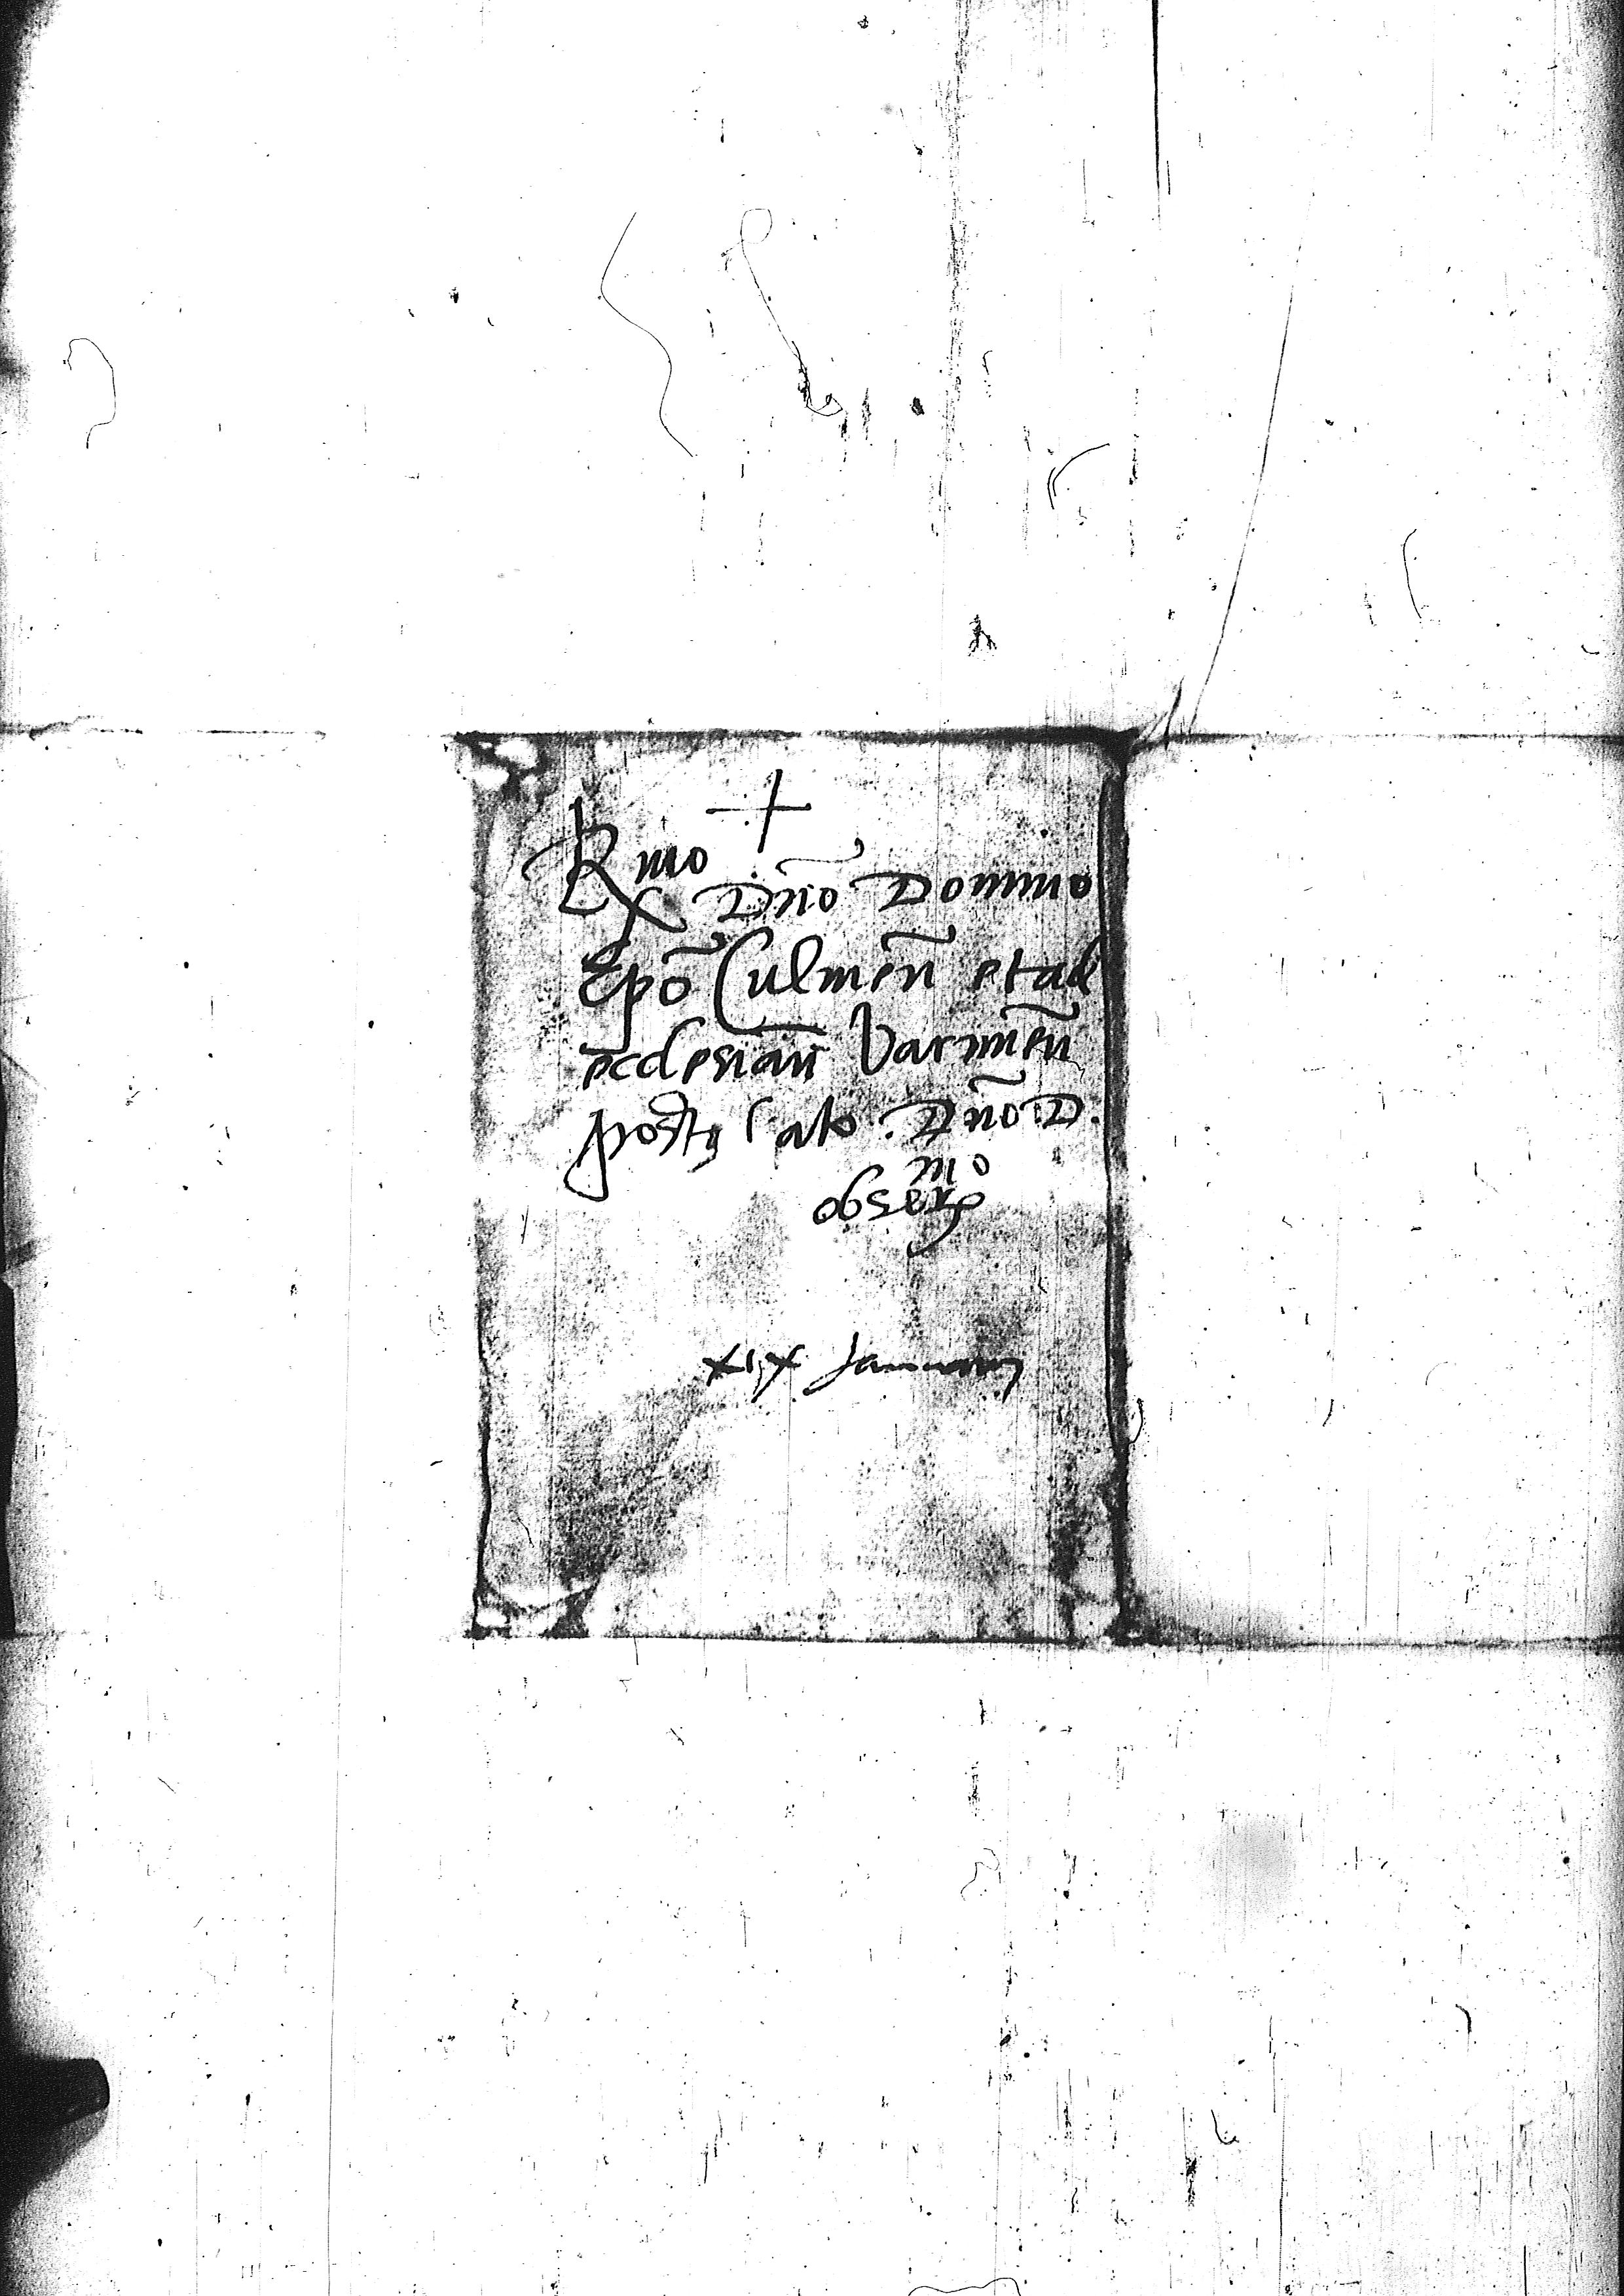 +
Rmo Dno Domino
Epo Culmen et ad
ecclesiam Varmien
postulato. Dno D.
obsermo
xix Januarij